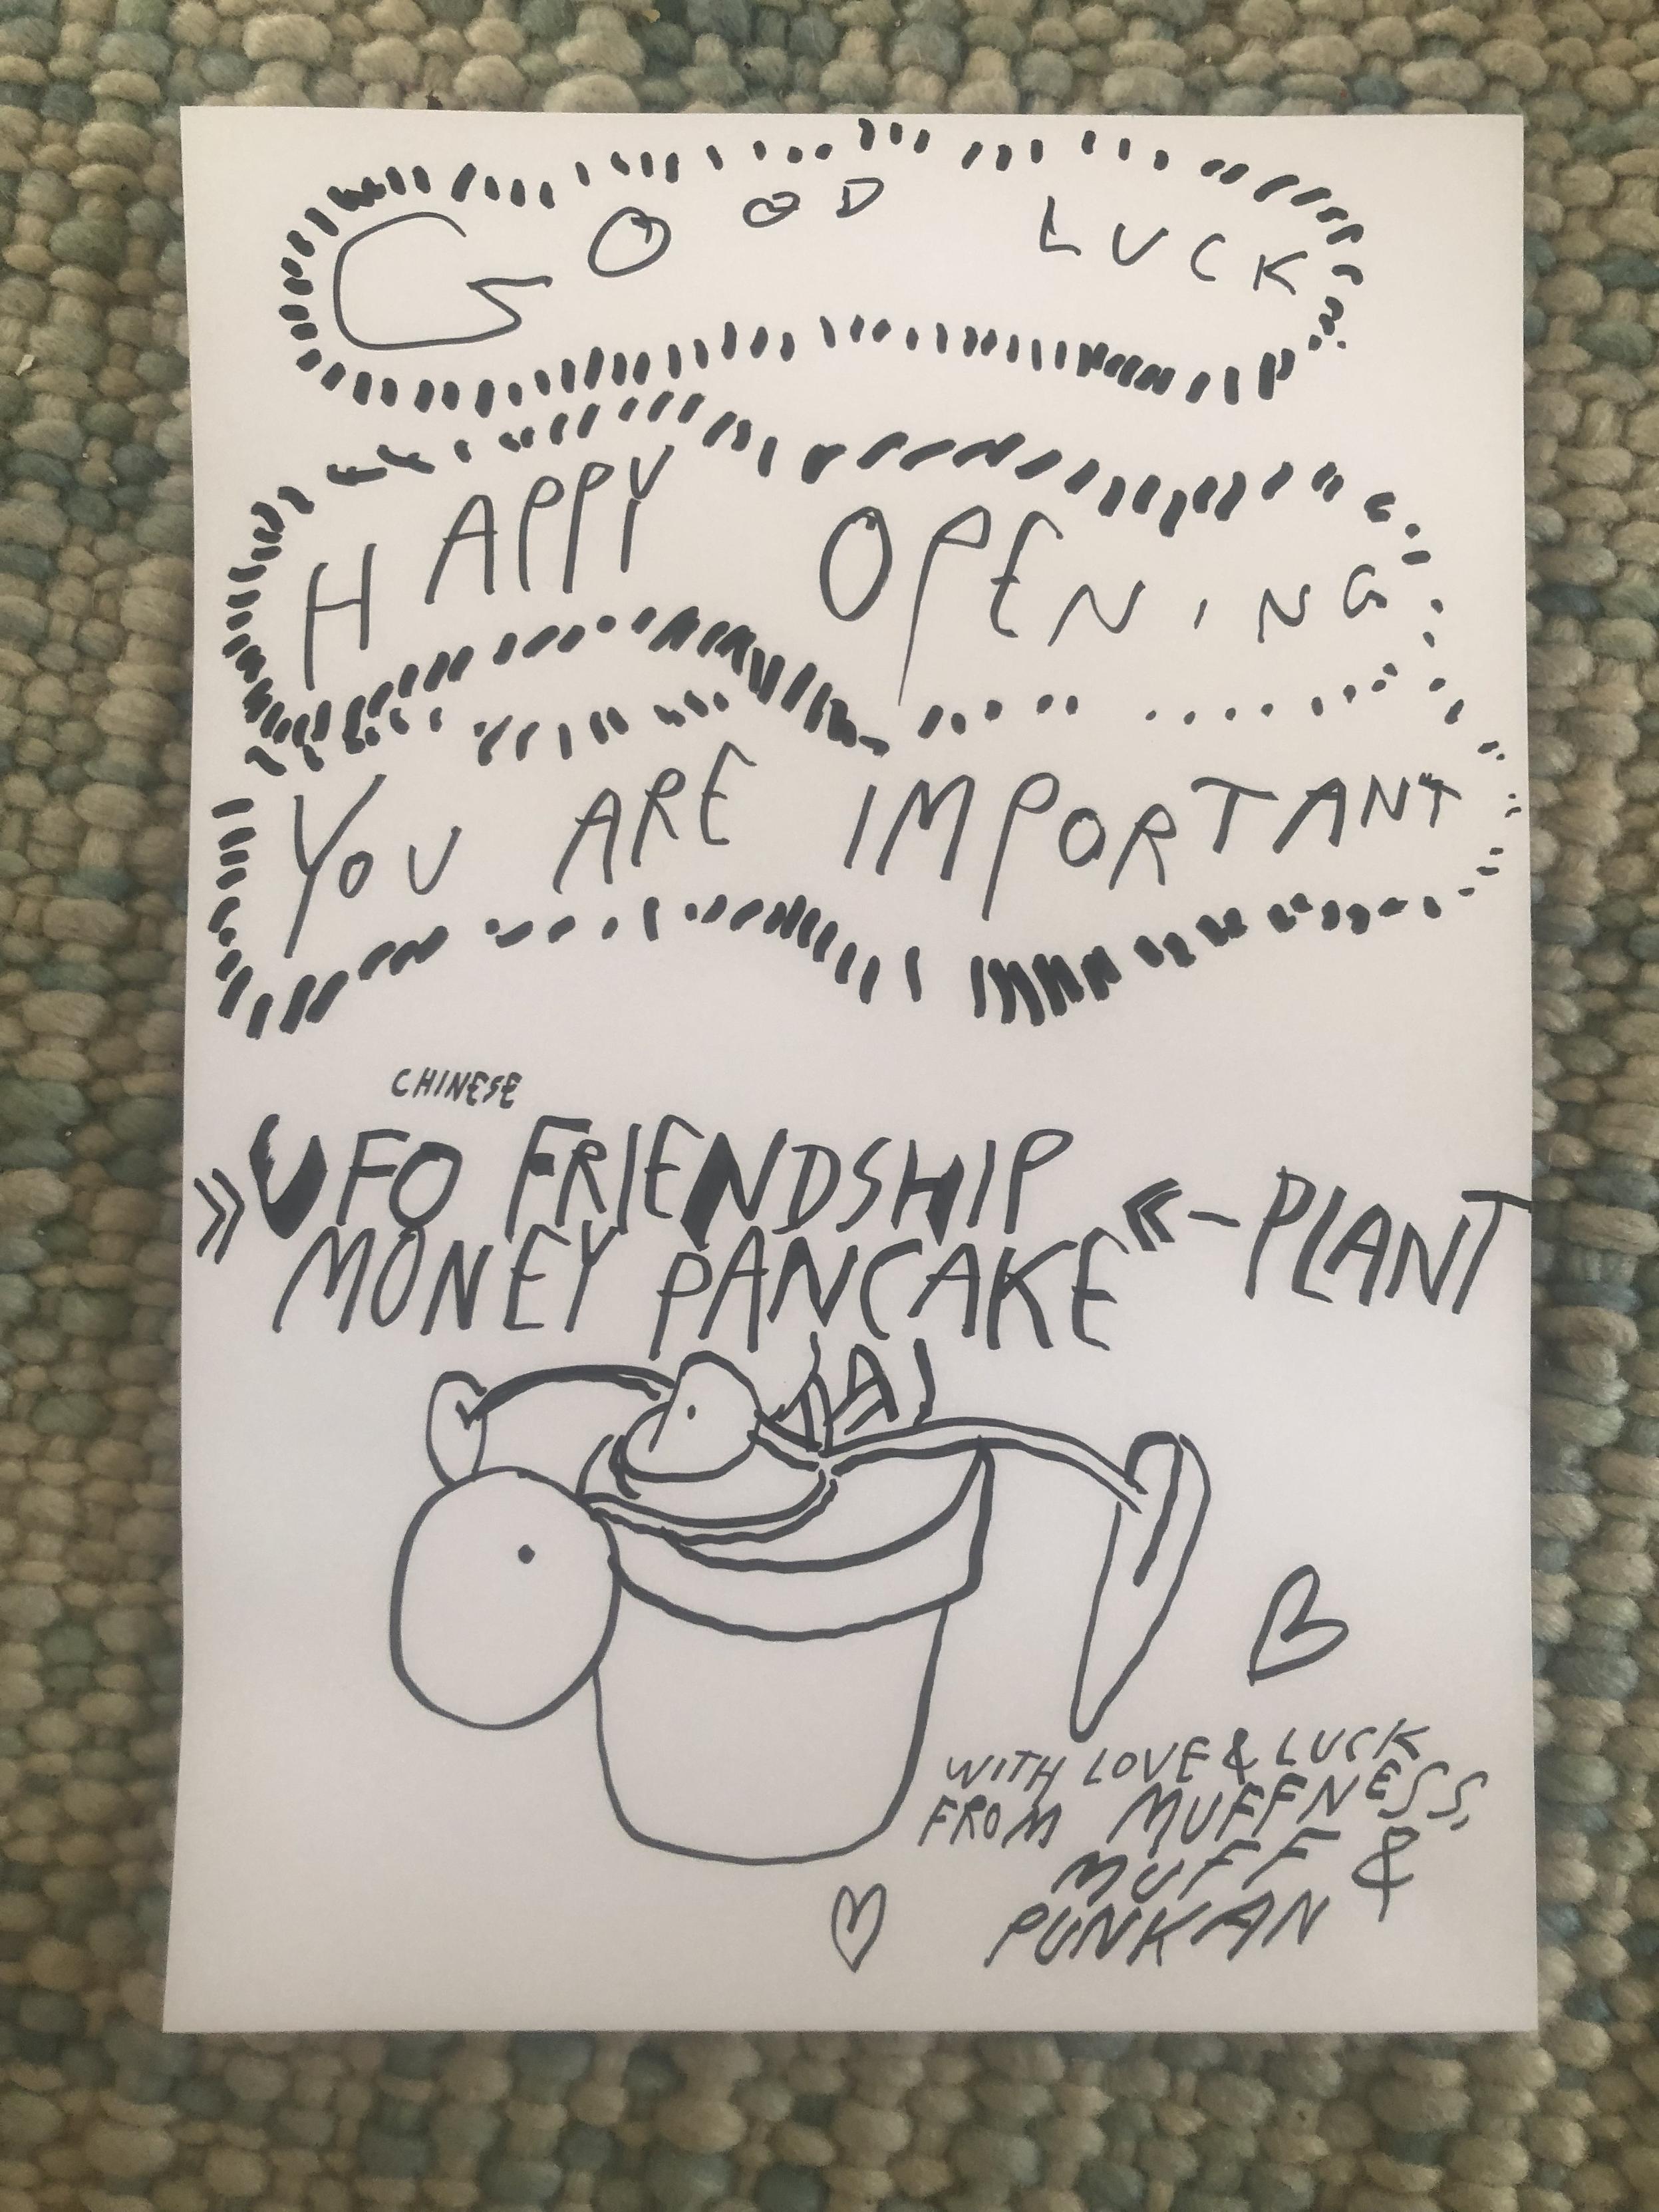 GOOD LUCK
HAPPY OPENING
YOU ARE IMPORTANT
CHINESE
»UFO FRIENDSHIP
MONEY PANCAKE«-PLANT
WITH LOVE & LUCK
FROM MUFFNESS,
MUFF &
PUNKAN